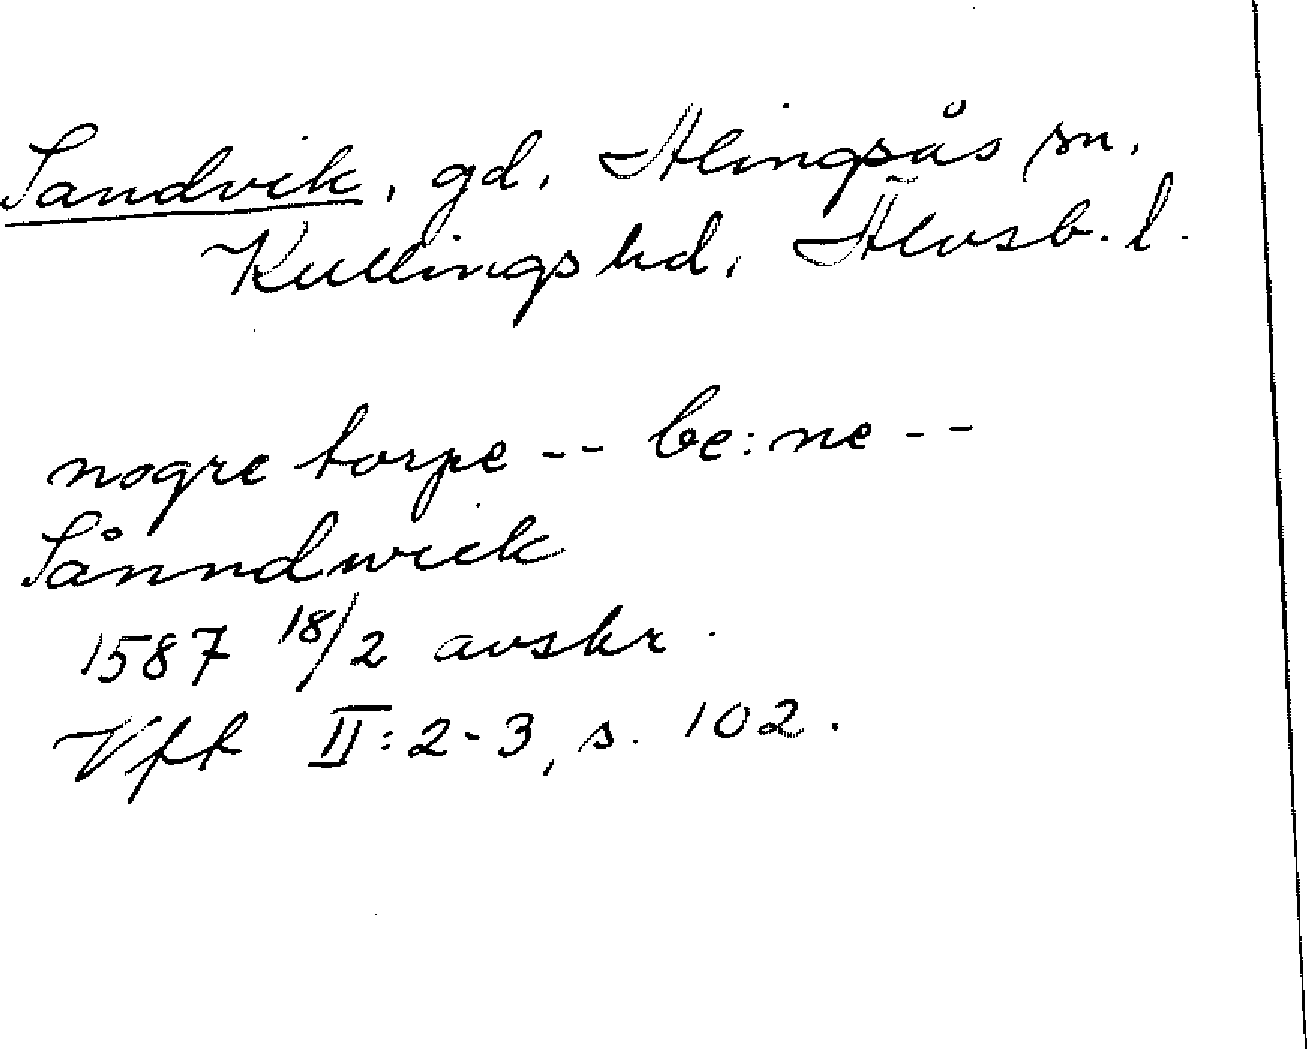 Sandvik, gd, Alingsås sn,
Kullings hd, Älvsb. l.
nogre torpe -- be:ne --
Sånndwiek
1587 18/2 avskr.
Vff II: 2-3, s. 102.